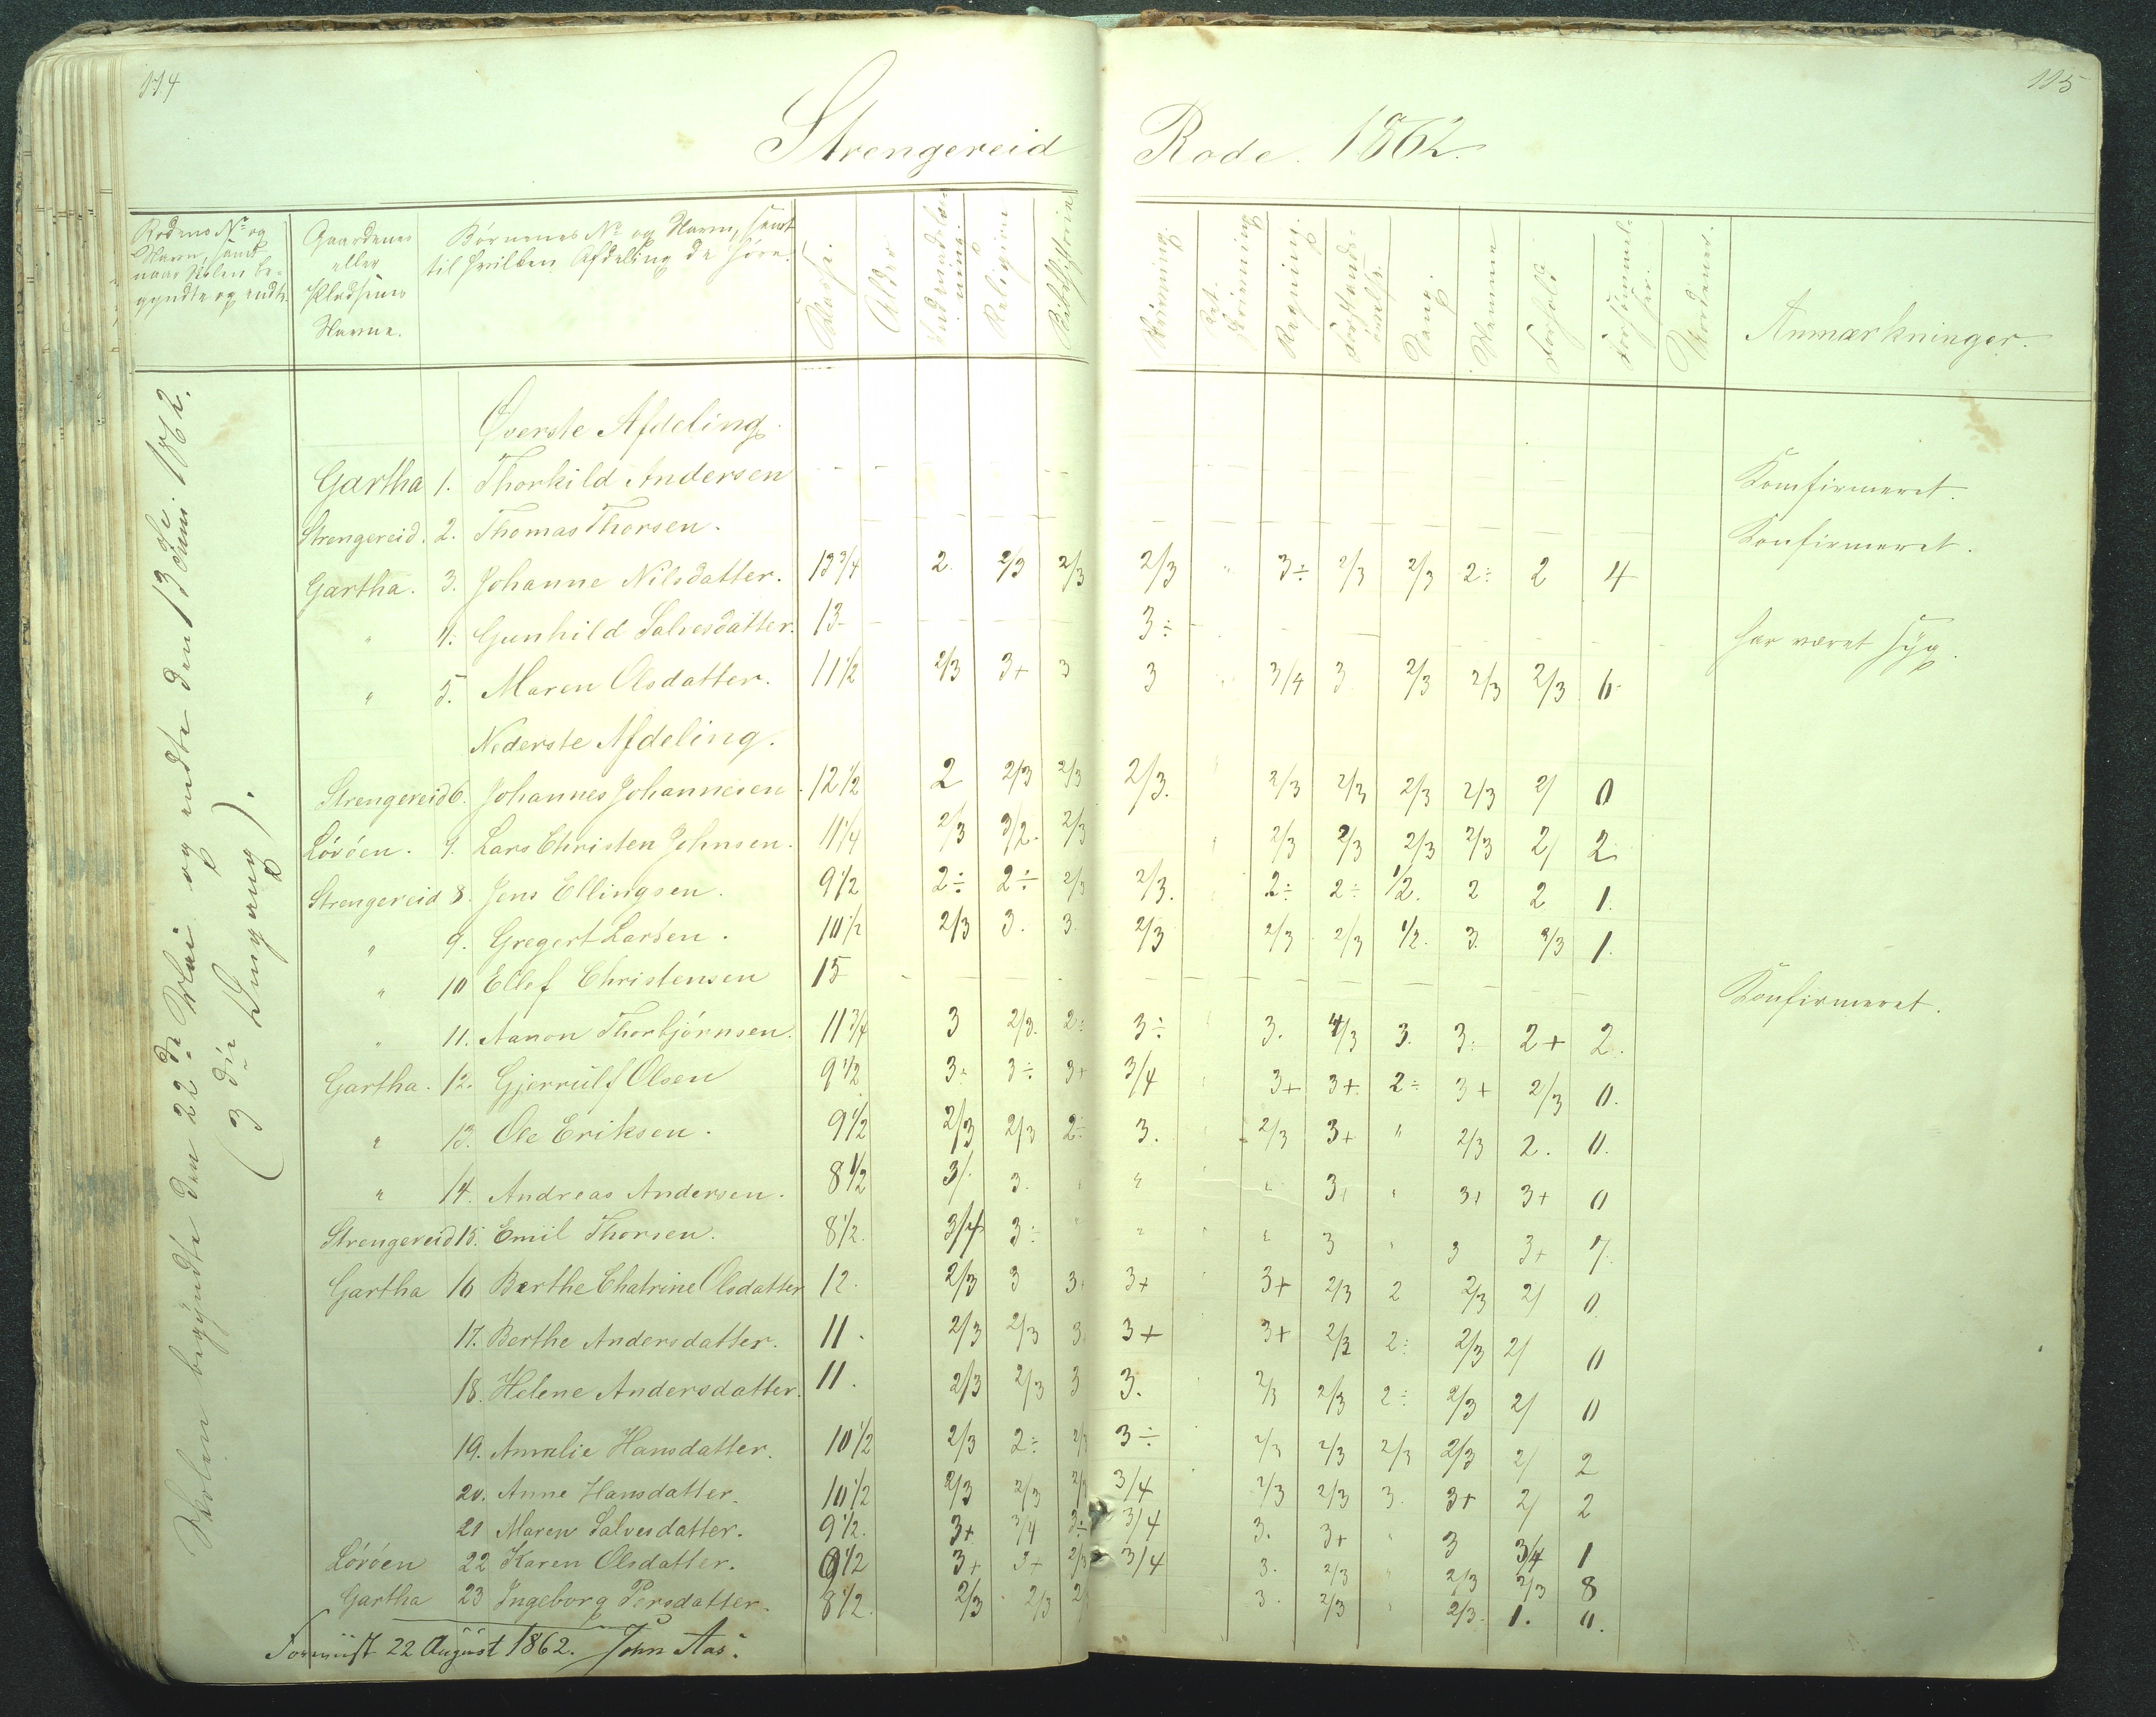 114
115
Strengereid Rode. 1862.
Rodens No og Navn, samt naar Skolen begyndte og endte.
Gaardenes eller Pladsenes Navne.
Børnenes No og Navn, samt til hvilken Afdeling de høre.
Klasse.
Alder
Indenadslæsning.
Religion
Bibelhistorie
Skrivning.
Ret-skrivning
Regning.
Forstandsøvelse.
Sang.
Nemme
Forhold
Forsømmelser.
Anmærkninger.
Skolen begyndte den 22de Mai og endte den 13de Juni 1862.
(3die Omgang).
Øverste Afdeling.
Gartha 1. Thorkild Andersen - - - - - - - - - Konfirmeret.
Strengereid. 2. Thomas Thorsen. - - - - - - - - - Konfirmeret.
Gartha. 3. Johanne Nilsdatter. 13 3/4 2. 2/3 2/3 2/3 " 3÷ 2/3 2/3 2÷ 2 4
" 4. Gunhild Salvesdatter. 13 - - - 3÷ - - - - - - har været syg.
" 5. Maren Olsdatter. 11 1/2 2/3 3+ 3 3 3/4 3 2/3 2/3 2/3 6
Nederste Afdeling.
Strengereid 6. Johannes Johannesen 12 1/2 2 2/3 2/3 2/3. 2/3 2/3 2/3 2/3 2/ 0
Lövöen. 7. Lars Christen Johnsen. 11 1/4 2/3 3/2. 2/3 2/3 2/3 2/3 2/3 2/ 2
Strengereid 8. Jens Ellingsen. 9 1/2 2÷ 2÷ 2/3 2/3. 2÷ 2÷ 1/2. 2 2 1.
" 9. Gregert Larsen. 10 1/2 2/3 3. 3. 2/3 2/3 2/3 1/2. 3. 2/3 1.
" 10 Ellef Christensen 15 - - - - - - - - - Konfirmeret.
" 11. Aanon Thorbjørnsen. 11 3/4 3 2/3. 2÷ 3÷ 3. 4/3 3. 3. 2+ 2.
Gartha. 12. Gjerrulf Olsen 9 1/2 3÷ 3÷ 3+ 3/4 3+ 3+ 2÷ 3+ 2/3 0.
" 13. Ole Eriksen. 9 1/2 2/3 2/3 2÷ 3. 2/3 3+ " 2/3 2. 0.
" 14. Andreas Andersen. 8 1/2 3/. 3. " " " 3+ " 3+ 3+ 0
Strengereid 15. Emil Thorsen. 8 1/2. 3/4 3÷ " " " 3 " 3 3+ 7.
Gartha 16 Berthe Chatrine Olsdatter 12. 2/3 3 3+ 3+ 3+ 2/3 2 2/3 2/ 0
17. Berthe Andersdatter. 11. 2/3 2/3 3. 3+ 3+ 2/3 2÷ 2/3 2/ 0
18. Helene Andersdatter. 11. 2/3 2/3 3 3. 2/3 2/3 2÷ 2/3 2/ 0
19. Amalie Hansdatter. 10 1/2 2/3 2÷ 2/3 3÷ 2/3 2/3 2/3 2/3 2/ 2
20. Anne Hansdatter. 10 1/2 2/3 2/3 2/3 3/4 2/3 2/3 3. 3+ 2/ 2
21 Maren Salvesdatter. 9 1/2. 3+ 3/4 3÷ 3/4 3. 3+ " 3 3/4 1
Lövöen 22 Karen Olsdatter. 9 1/2 3+ 3+ 2/3 3/4 3. 2/3 " 2/3 2/3 8
Gartha 23 Ingeborg Persdatter. 8 1/2. 2/3 2/3 2/ 3. 2/3 " 2/3. 1. 0.
22 August 1862. John Aas.